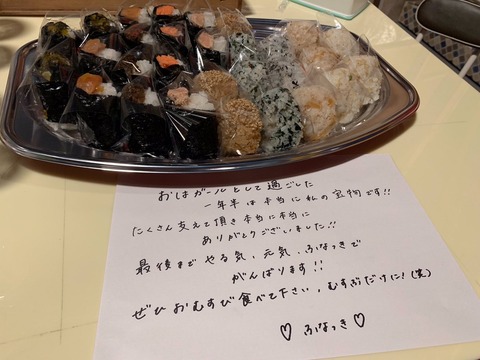 おはガールとして過ごした
一年半は本当に私の宝物です!!
たくさん支えて頂き本当に本当に
ありがとうございました!!
最後までやる気、元気、ふなっきで
がんばります!!
ぜひおむすび食べて下さい、むすぶだけに!(笑)
♡ ふなっき ♡